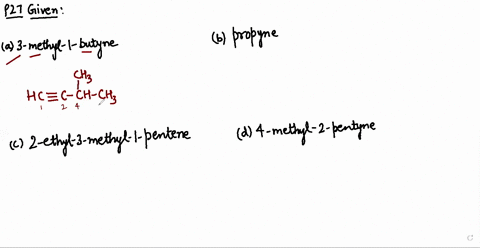 P27 Given:
(a) 3-methyl-1-butyne
(b) propyne
CH3
HC≡C-CH-CH3
1 2 4
(c) 2-ethyl-3-methyl-1-pentene
(d) 4-methyl-2-pentyne